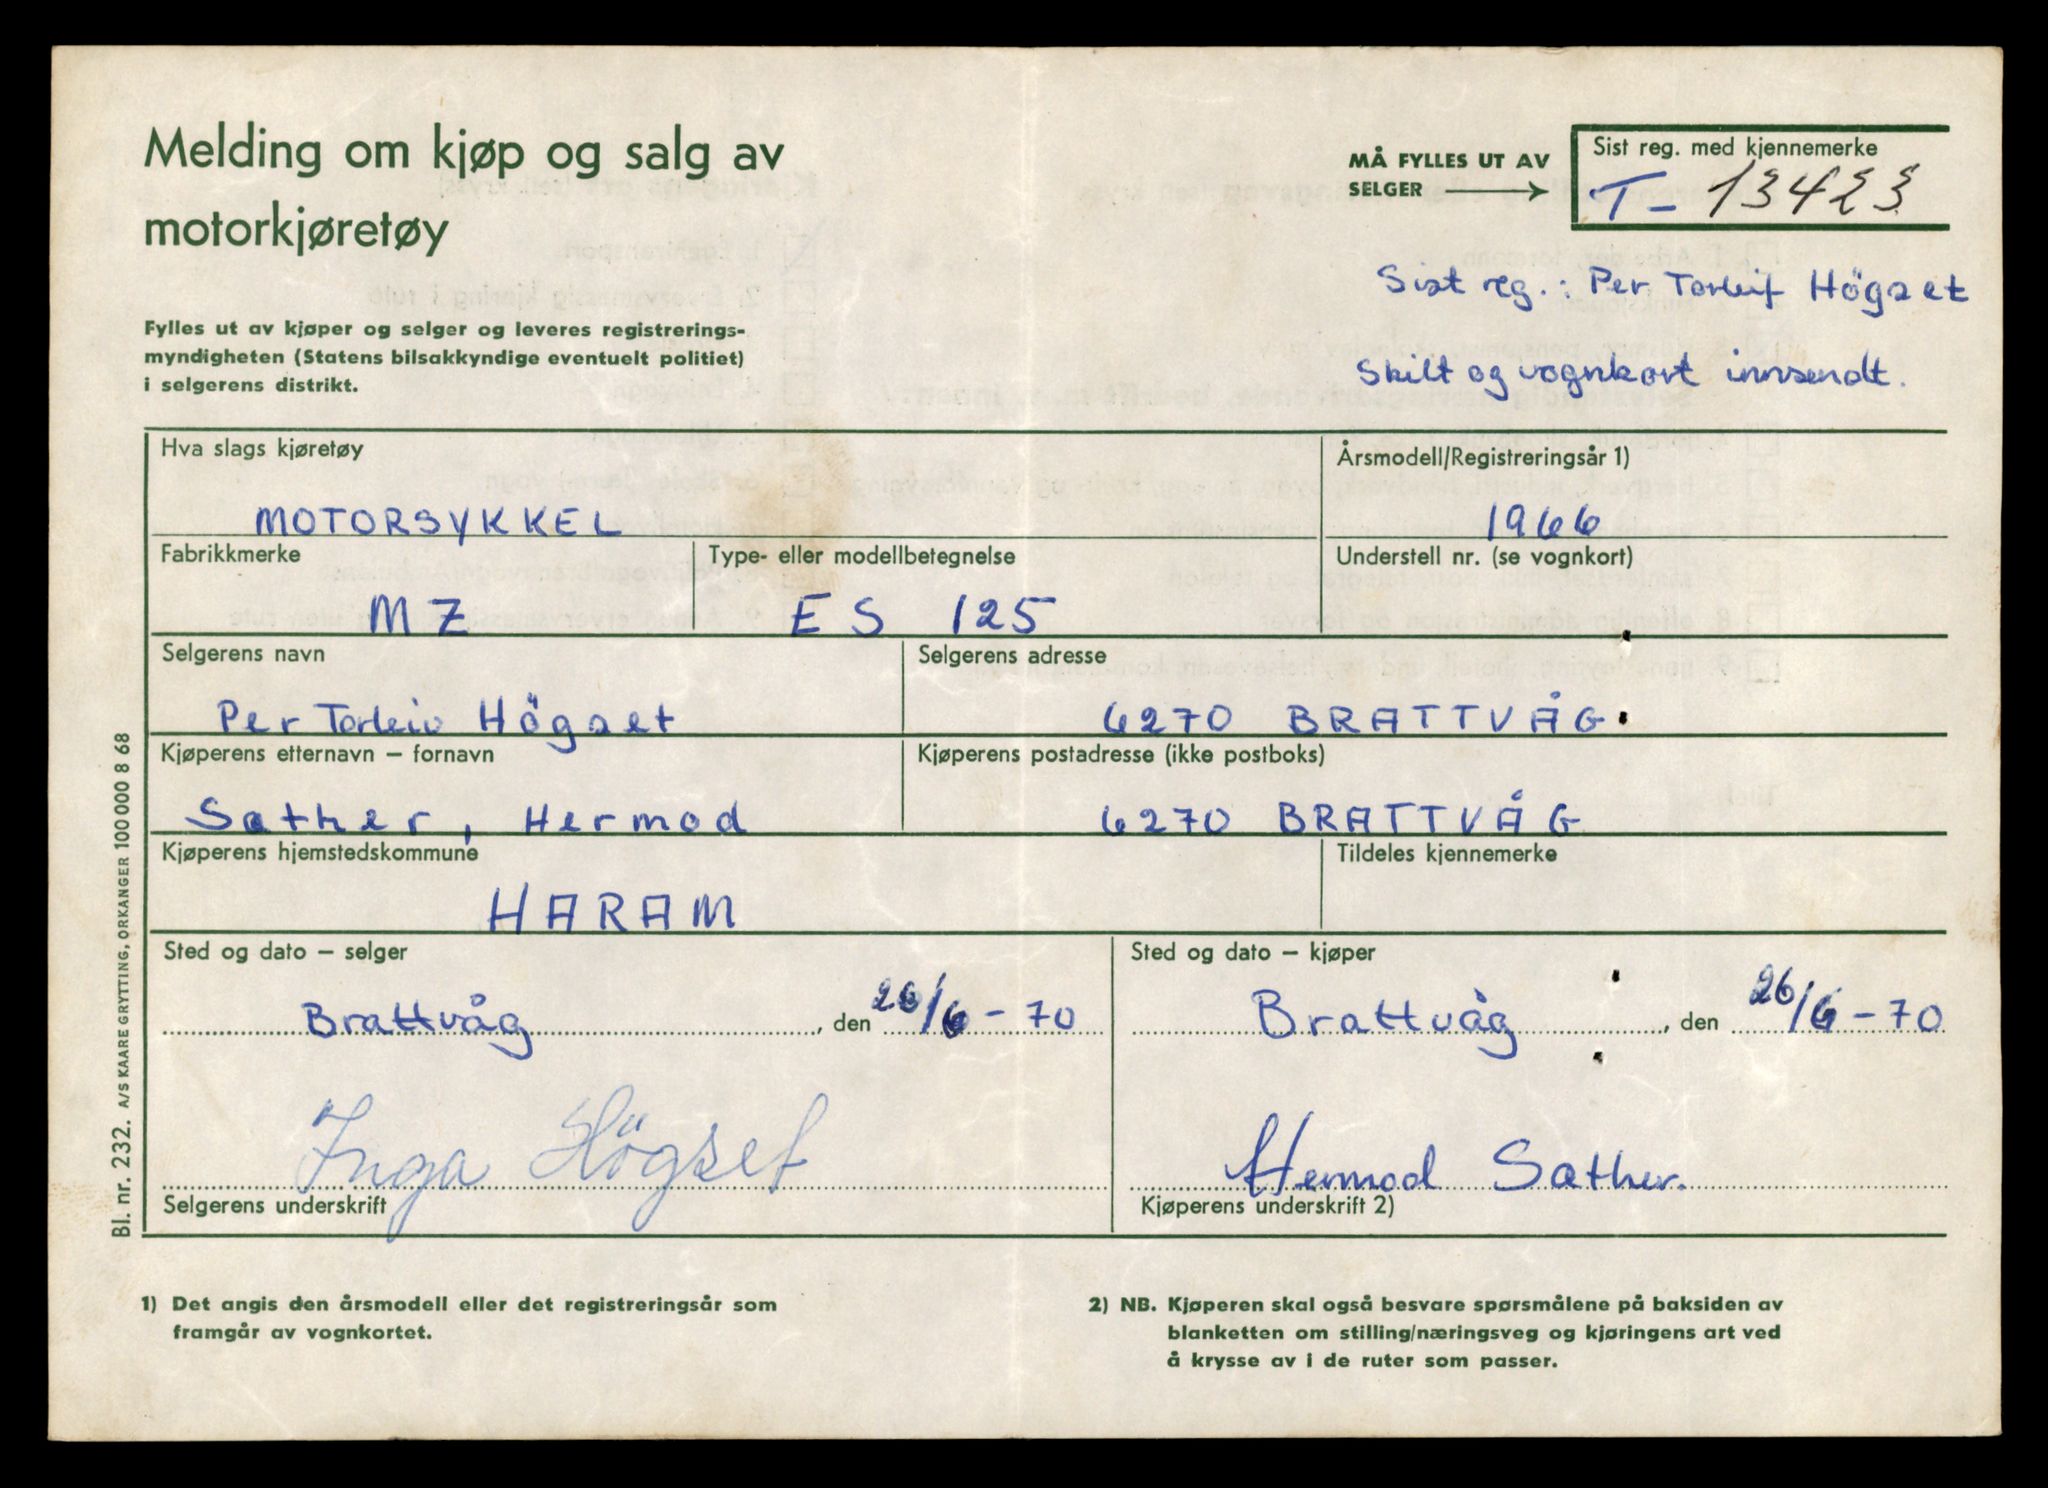 Melding om kjøp og salg av
motorkjøretøy
Fylles ut av kjøper og selger og leveres registrerings-
myndigheten (Statens bilsakkyndige eventuelt politiet)
i selgerens distrikt.
MÅ FYLLES UT AV
SELGER
Sist reg. med kjennemerke
T - 13423
Sist reg.: Per Torleif Högset
Skilt og vognkort innsendt.
Hva slags kjøretøy
MOTORSYKKEL
Årsmodell/Registreringsår 1)
1966
Fabrikkmerke
MZ
Type- eller modellbetegnelse
ES 125
Understell nr. (se vognkort)
Selgerens navn
Per Torleiv Högset
Selgerens adresse
6270 BRATTVÅG
Kjøperens etternavn – fornavn
Sæther, Hermod
Kjøperens postadresse (ikke postboks)
6270 BRATTVÅG
Kjøperens hjemstedskommune
HARAM
Tildeles kjennemerke
Sted og dato – selger
Brattvåg, den 26/6 - 70
Sted og dato – kjøper
Brattvåg, den 26/6 - 70
Inga Högset
Selgerens underskrift
Hermod Sæther.
Kjøperens underskrift 2)
Bl. nr. 232. A/S KAARE GRYTTING, ORKANGER 100 000 8 68
1) Det angis den årsmodell eller det registreringsår som
framgår av vognkortet.
2) NB. Kjøperen skal også besvare spørsmålene på baksiden av
blanketten om stilling/næringsveg og kjøringens art ved
å krysse av i de ruter som passer.